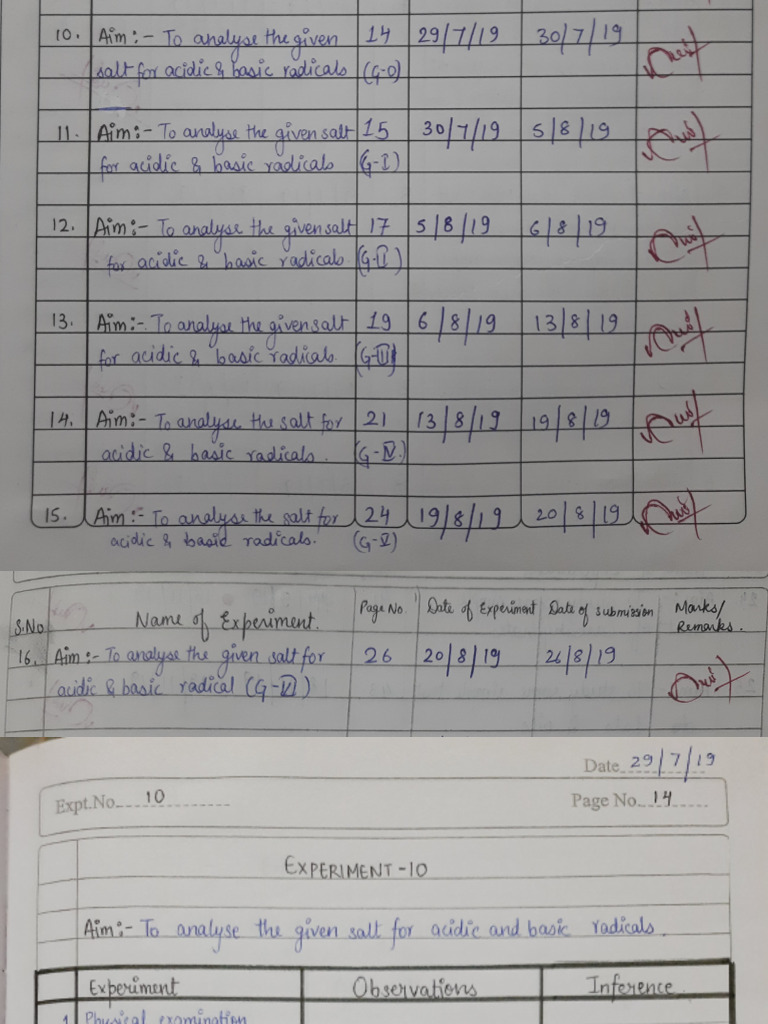 10. Aim:- To analyse the given 14 29/7/19 30/7/19
salt for acidic & basic radicals (G-0)
11. Aim:- To analyse the given salt 15 30/7/19 5/8/19
for acidic & basic radicals (G-I)
12. Aim:- To analyse the given salt 17 5/8/19 6/8/19
for acidic & basic radicals. (G-II)
13. Aim:- To analyse the given salt 19 6/8/19 13/8/19
for acidic & basic radicals. (G-III)
14. Aim:- To analyse the salt for 21 13/8/19 19/8/19
acidic & basic radicals. (G-IV.)
15. Aim:- To analyse the salt for 24 19/8/19 20/8/19
acidic & basic radicals. (G-V)
S.No Name of Experiment. Page No. Date of Experiment Date of submission Marks/
Remarks.
16. Aim:- To analyse the given salt for 26 20/8/19 26/8/19
acidic & basic radical (G-VI)
Date 29/7/19
Expt.No. 10 Page No. 14
EXPERIMENT-10
Aim:- To analyse the given salt for acidic and basic radicals.
Experiment Observations Inference
1. Physical examination